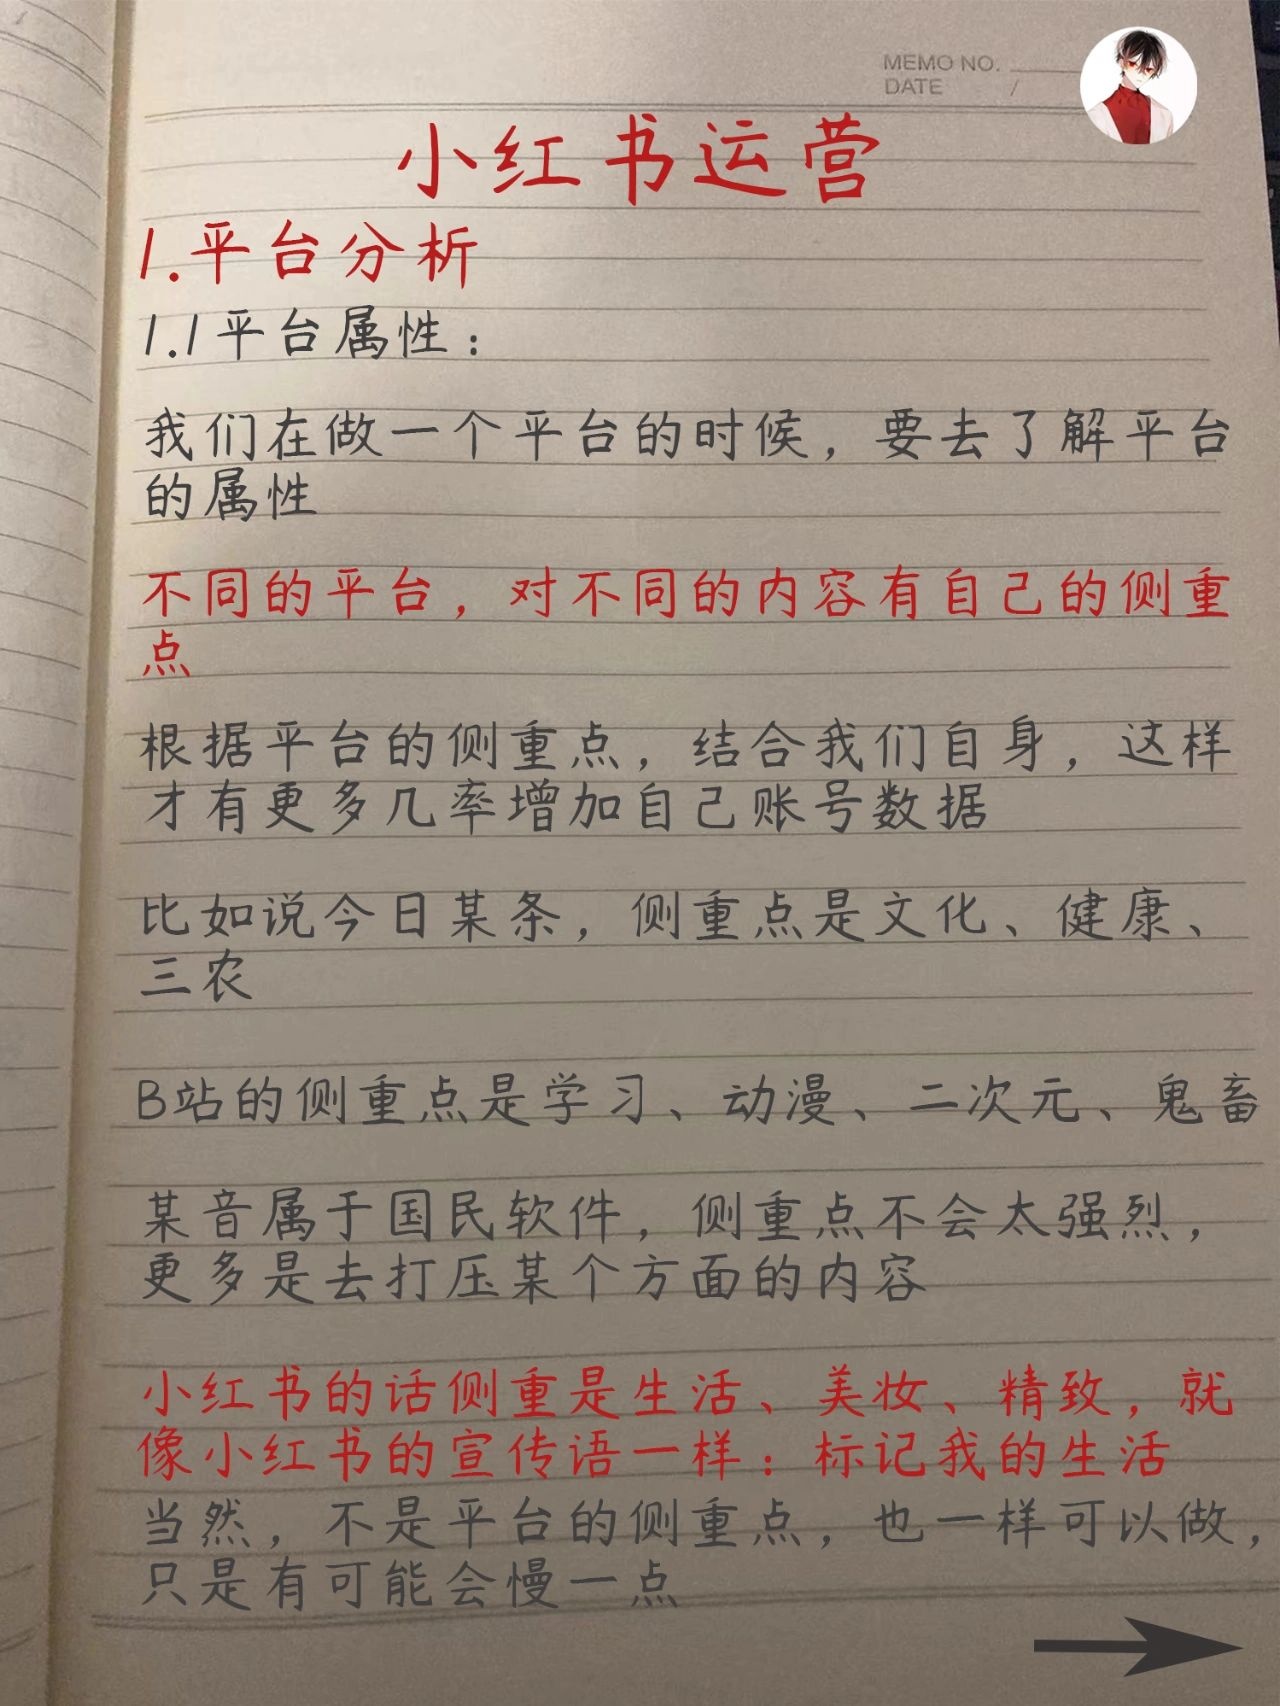 MEMO NO.
DATE /
小红书运营
1.平台分析
1.1平台属性：
我们在做一个平台的时候，要去了解平台
的属性
不同的平台，对不同的内容有自己的侧重
点
根据平台的侧重点，结合我们自身，这样
才有更多几率增加自己账号数据
比如说今日某条，侧重点是文化、健康、
三农
B站的侧重点是学习、动漫、二次元、鬼畜
某音属于国民软件，侧重点不会太强烈，
更多是去打压某个方面的内容
小红书的话侧重是生活、美妆、精致，就
像小红书的宣传语一样：标记我的生活
当然，不是平台的侧重点，也一样可以做，
只是有可能会慢一点